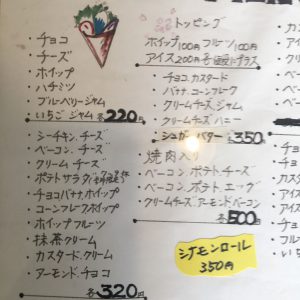 ・チョコ
・チーズ
・ホイップ
・ハチミツ
・ブルーベリージャム
・いちごジャム 各220円
・シーチキン.チーズ
・ベーコン.チーズ
・クリームチーズ
・ポテトサラダ
・チョコバナナ.ホイップ
・コーンフレークホイップ
・ホイップフルーツ
・抹茶クリーム
・カスタード.クリーム
・アーモンド.チョコ
各320円
トッピング
ホイップ100円 フルーツ100円
アイス200円 各値段にプラス
・チョコ.カスタード
・バナナ.コーンフレーク
・クリームチーズ.ジャム
・クリームチーズ.ハニー
・シュガーバター 各350円
・焼肉入り
・ベーコン.ポテト.チーズ
・ベーコン.ポテト.エッグ
・クリームチーズ.アーモンド.ベーコン
各500円
シナモンロール
350円